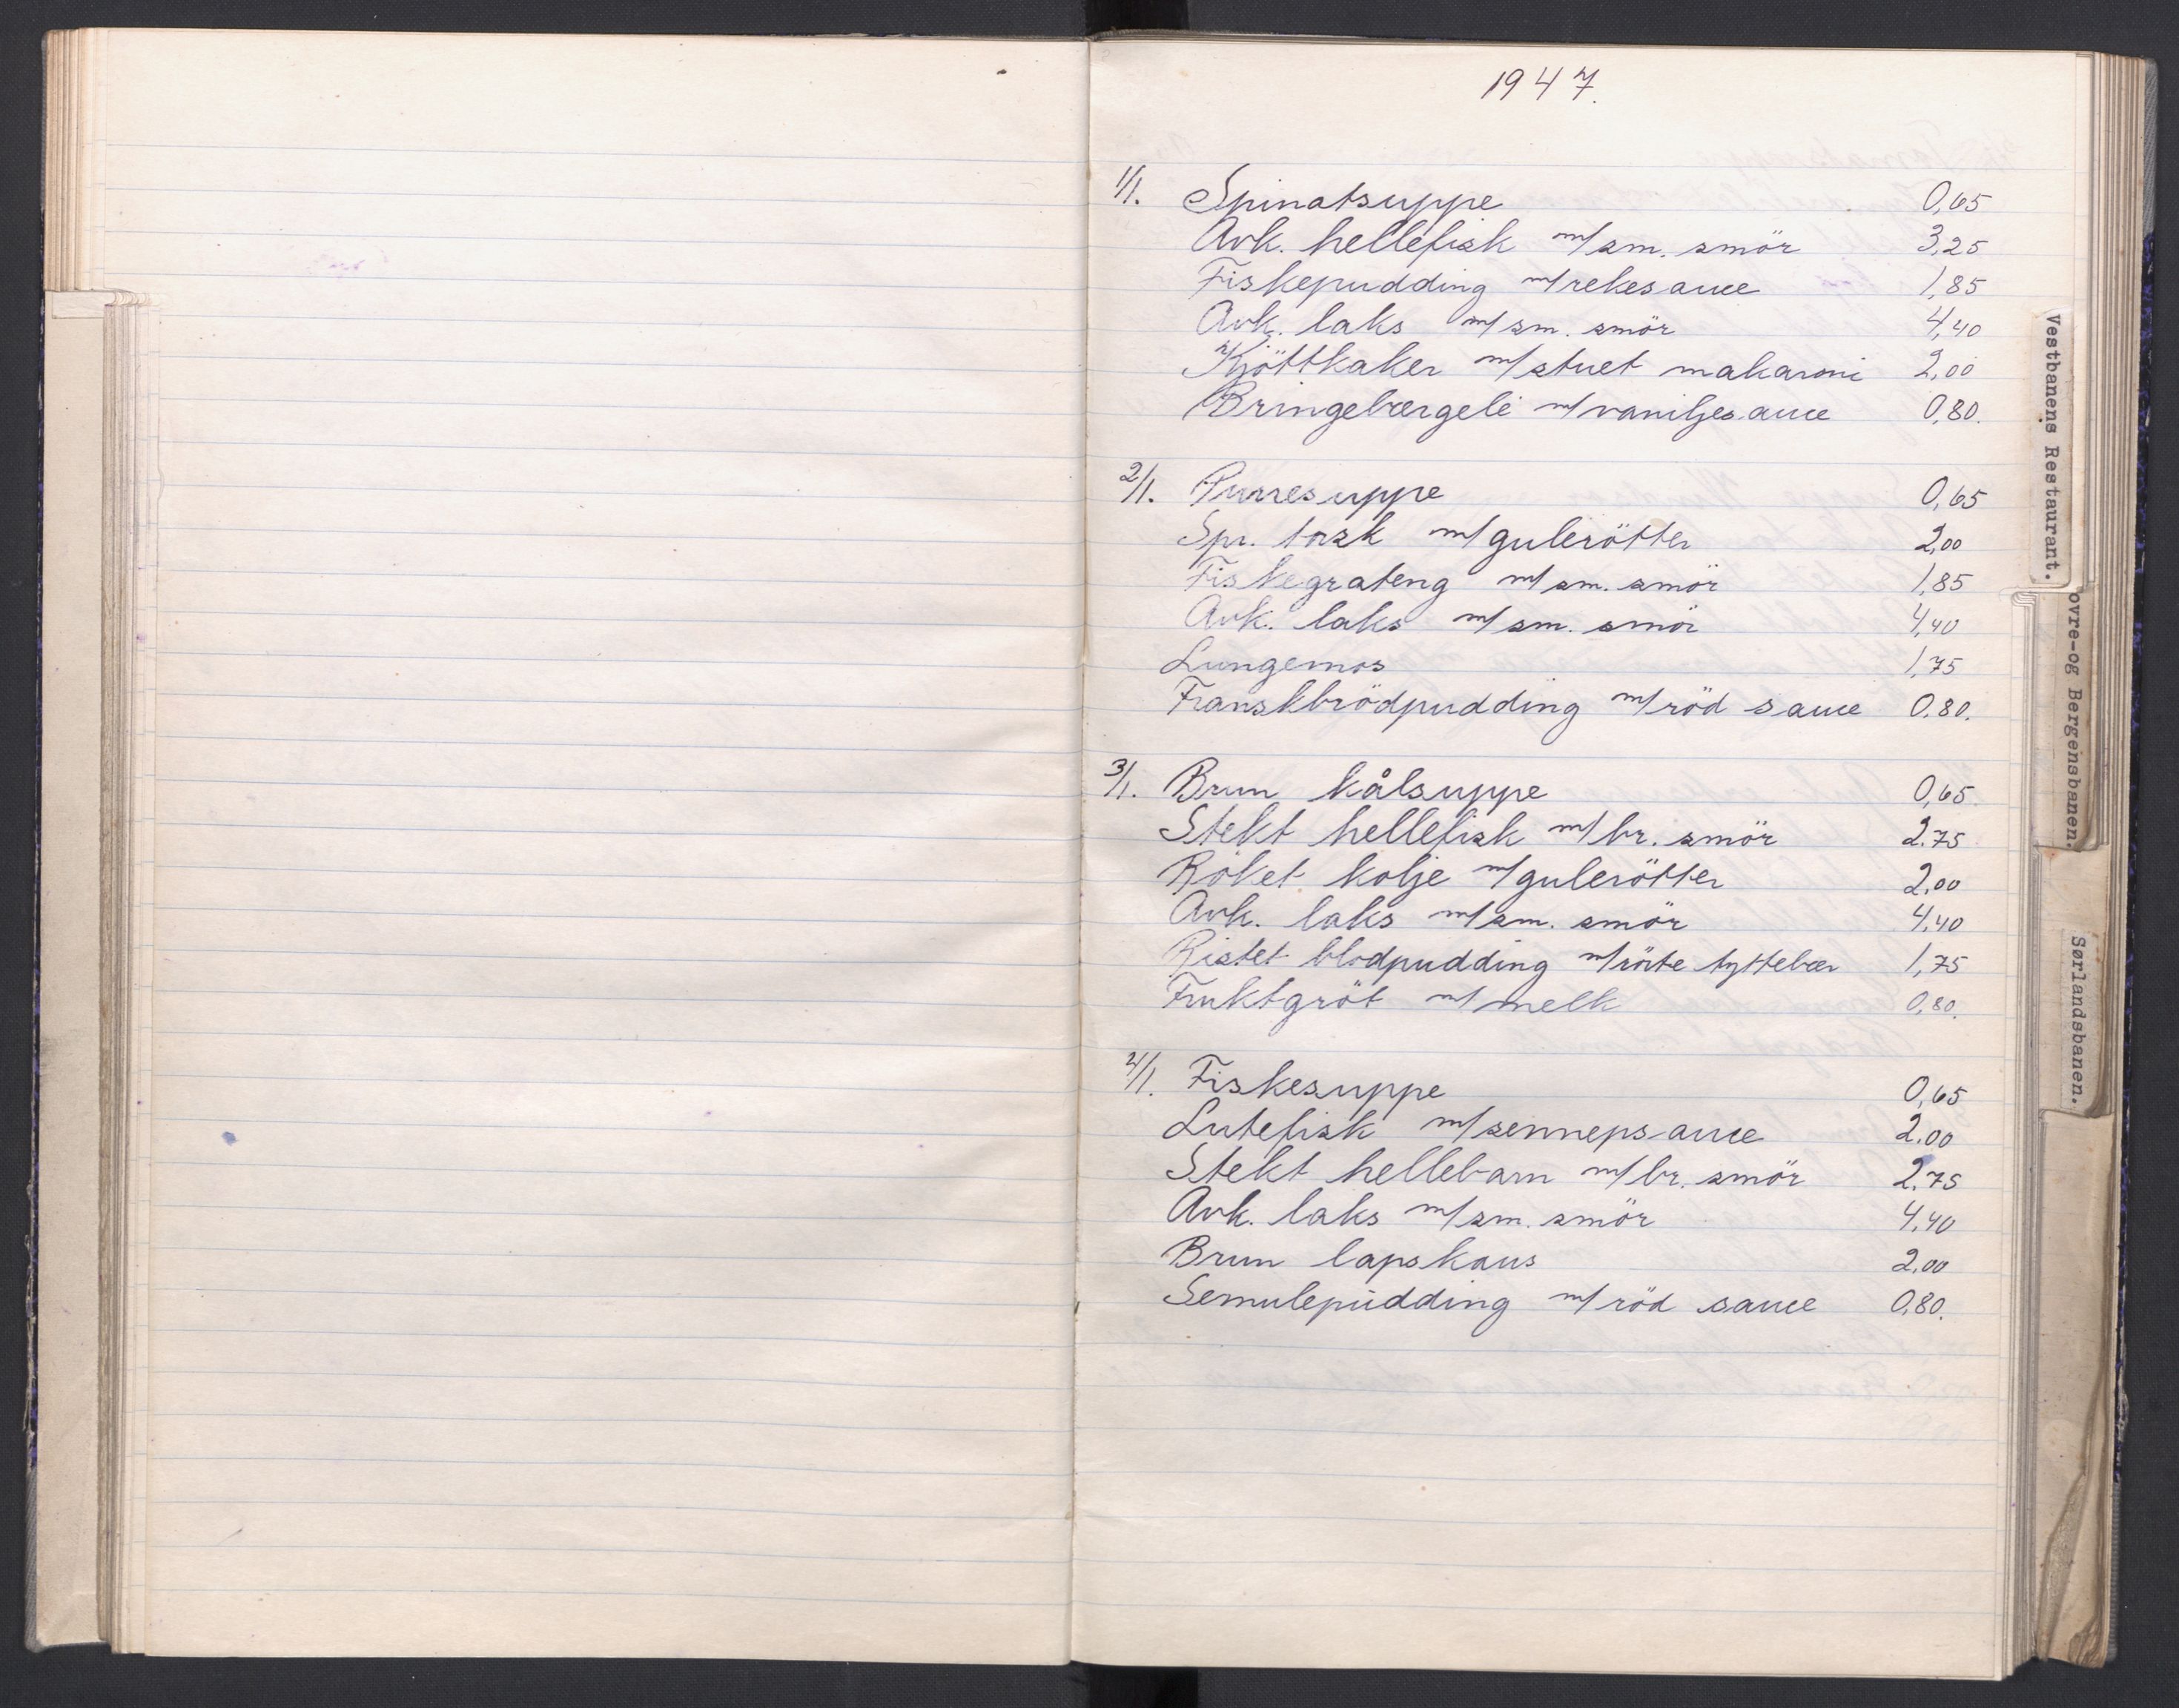 1947.
1/1. Spinatsuppe 0,65
Avk. hellefisk m/sm. smör 3,25
Fiskepudding m/rekesauce 1,85
Avk. laks m/sm. smör 4,40
Kjöttkaker m/stuet makaroni 2,00
Bringebærgelé m/vaniljesauce 0,80.
2/1. Purresuppe 0,65
Spr. torsk m/gulerötter 2,00
Fiskegrateng m/sm. smör 1,85
Avk. laks m/sm. smör 4,40
Lungemos 1,75
Franskbrödpudding m/röd sauce 0.80.
3/1. Brun kålsuppe 0,65
Stekt hellefisk m/br. smör 2.75
Röket kolje m/gulerötter 2,00
Avk. laks m/sm. smör 4,40
Ristet blodpudding m/rörte tyttebær 1,75
Fruktgröt m/melk 0,80.
4/1. Fiskesuppe 0,65
Lutefisk m/sennepsauce 2.00
Stekt hellebarn m/br. smör 2.75
Avk. laks m/sm. smör 4,40
Brun lapskaus 2,00
Semulepudding m/röd sauce 0,80.
Vestbanens Restaurant.
ovre-og Bergensbanen.
Sørlandsbanen.